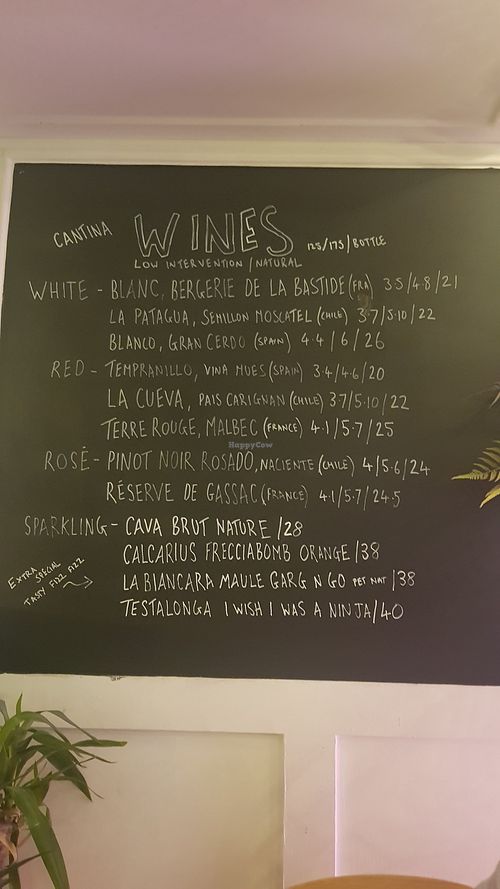 CANTINA WINES 125/175/BOTTLE
LOW INTERVENTION/NATURAL
WHITE - BLANC, BERGERIE DE LA BASTIDE (FRA) 3.5/4.8/21
LA PATAGUA, SEMILLON MOSCATEL (CHILE) 3.7/5.10/22
BLANCO, GRAN CERDO (SPAIN) 4.4/6/26
RED - TEMPRANILLO, VINA MUES (SPAIN) 3.4/4.6/20
LA CUEVA, PAIS CARIGNAN (CHILE) 3.7/5.10/22
TERRE ROUGE, MALBEC (FRANCE) 4.1/5.7/25
HappyCow
ROSÉ - PINOT NOIR ROSADO, NACIENTE (CHILE) 4/5.6/24
RÉSERVE DE GASSAC (FRANCE) 4.1/5.7/24.5
SPARKLING - CAVA BRUT NATURE /28
CALCARIUS FRECCIABOMB ORANGE /38
EXTRA SPECIAL
TASTY FIZZ FIZZ
LA BIANCARA MAULE GARG N GO PET NAT /38
TESTALONGA I WISH I WAS A NINJA/40